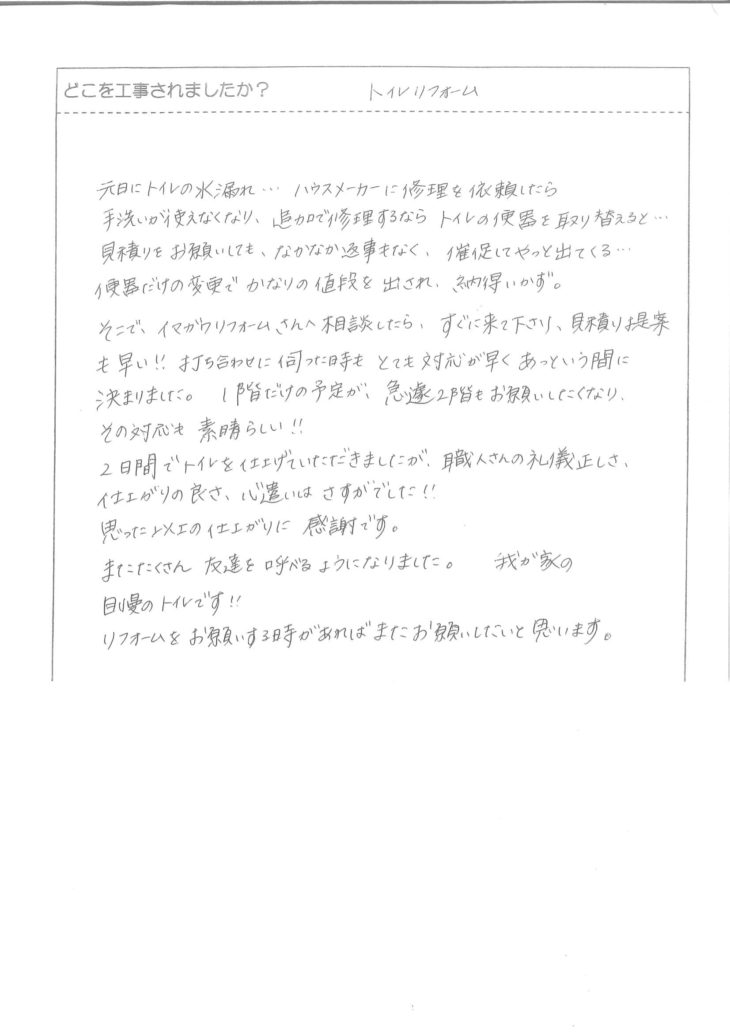 どこを工事されましたか? トイレリフォーム
元日にトイレの水漏れ… ハウスメーカーに修理を依頼したら
手洗いが使えなくなり、追加で修理するなら トイレの便器を取り替えると…
見積りをお願いしても、なかなか返事もなく、催促してやっと出てくる…
便器だけの変更で かなりの値段を出され、納得いかず。
そこで、イマガワリフォームさんへ相談したら、すぐに来て下さり、見積りも提案
も早い!! 打ち合わせに伺った時も とても対応が早く あっという間に
決まりました。 1階だけの予定が、急遽2階もお願いしたくなり、
その対応も 素晴らしい!!
2日間でトイレを仕上げていただきましたが、職人さんの礼儀正しさ、
仕上がりの良さ、心遣いは さすがでした!!
思った以上の仕上がりに 感謝です。
またたくさん 友達を呼べるようになりました。 我が家の
自慢のトイレです!!
リフォームをお願いする時があればまたお願いしたいと思います。